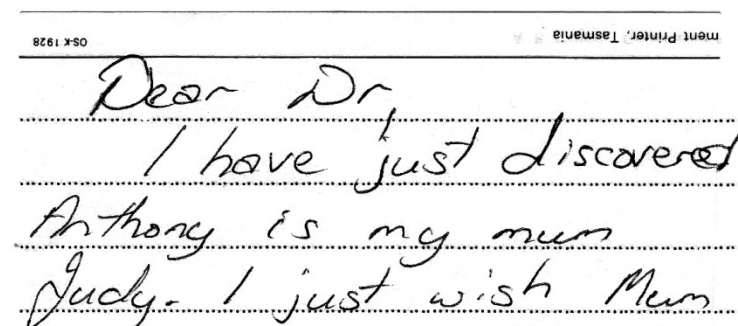 ment Printer, Tasmania
OS-K 1928
Dear Dr,
I have just discovered
Anthony is my mum
Judy. I just wish Mum